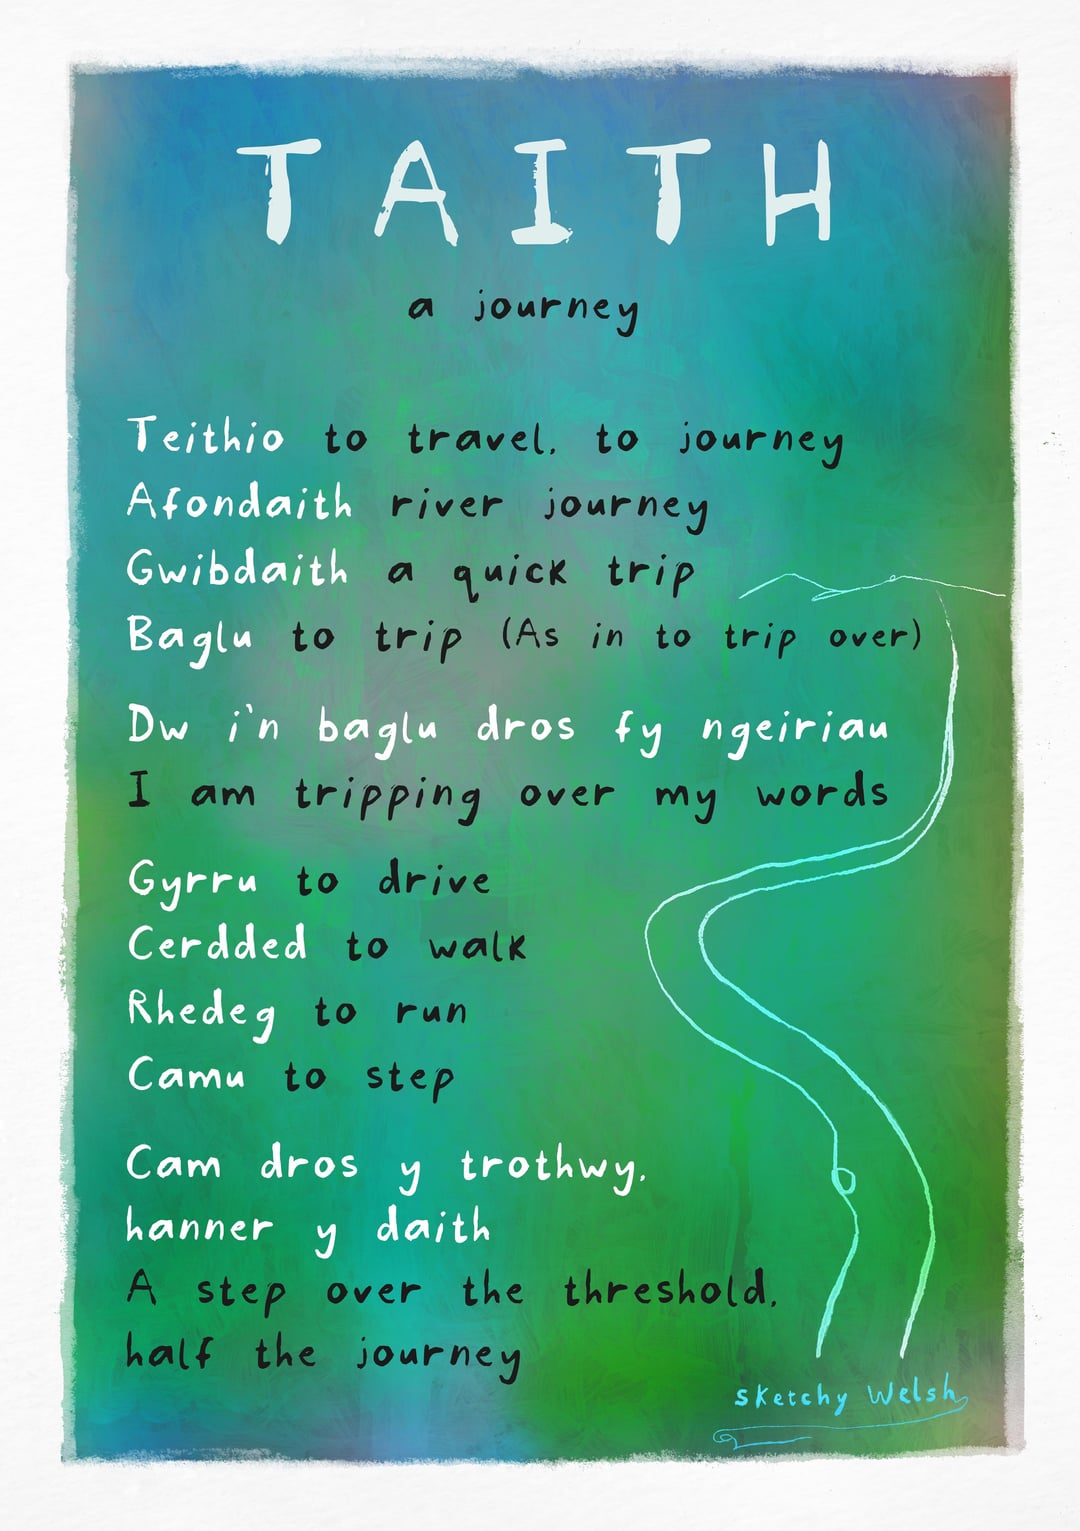 TAITH
a journey
Teithio to travel, to journey
Afondaith river journey
Gwibdaith a quick trip
Baglu to trip (As in to trip over)
Dw i'n baglu dros fy ngeiriau
I am tripping over my words
Gyrru to drive
Cerdded to walk
Rhedeg to run
Camu to step
Cam dros y trothwy,
hanner y daith
A step over the threshold,
half the journey
Sketchy Welsh